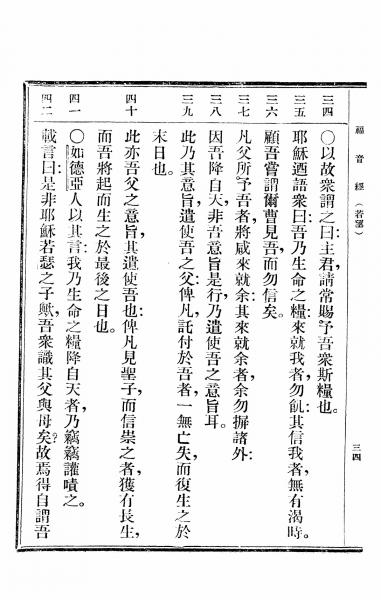 福音經 (若望) 三四
三四 ○以故衆謂之曰:主君,請常賜予吾衆斯糧也。
三五 耶穌迺語衆曰:吾乃生命之糧:來就我者勿飢:其信我者,無有渴時。
三六 顧吾嘗謂爾曹見吾,而勿信矣。
三七 凡父所予吾者,將咸來就余:其來就余者,余勿摒諸外:
三八 因吾降自天,非吾意旨是行,乃遣使吾之意旨耳。
三九 此乃其意旨,遣使吾之父:俾凡託付於吾者,一無亡失,而復生之於
末日也。
四十 此亦吾父之意旨,其遣使吾也:俾凡見聖子,而信崇之者,獲有長生,
而吾將起而生之於最後之日也。
四一 ○如德亞人以其言:我乃生命之糧,降自天者,乃竊竊讙嘖之。
四二 載言曰:是非耶穌若瑟之子歟,吾衆識其父與母矣?故焉得自謂吾